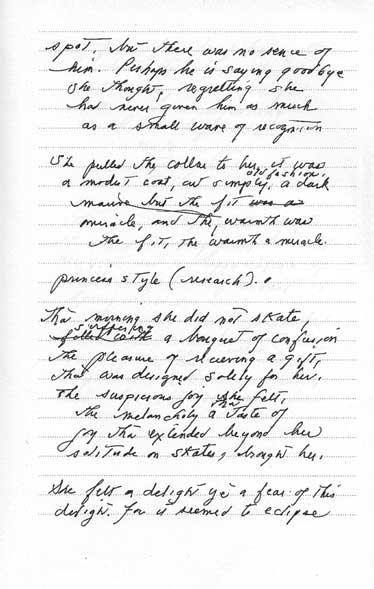 spot, but there was no sence of
him. Perhaps he is saying goodbye
she thought, regretting she
had never given him as much
as a small wave of recognition
She pulled the collar to her, it was
old fashion.
a modest coat, cut simply, a dark
mauve but the fit was a
miracle, and the warmth was
the fit, the warmth a miracle.
princess style (research).
That morning she did not skate,
suffering
filled with a bouquet of confusion
the pleasure of recieving a gift,
that was designed solely for her.
The suspicious joy she felt,
the melancholy a taste of
joy that extended beyond her
solitude on skates, brought her.
She felt a delight yet a fear of this
delight. For it seemed to eclipse